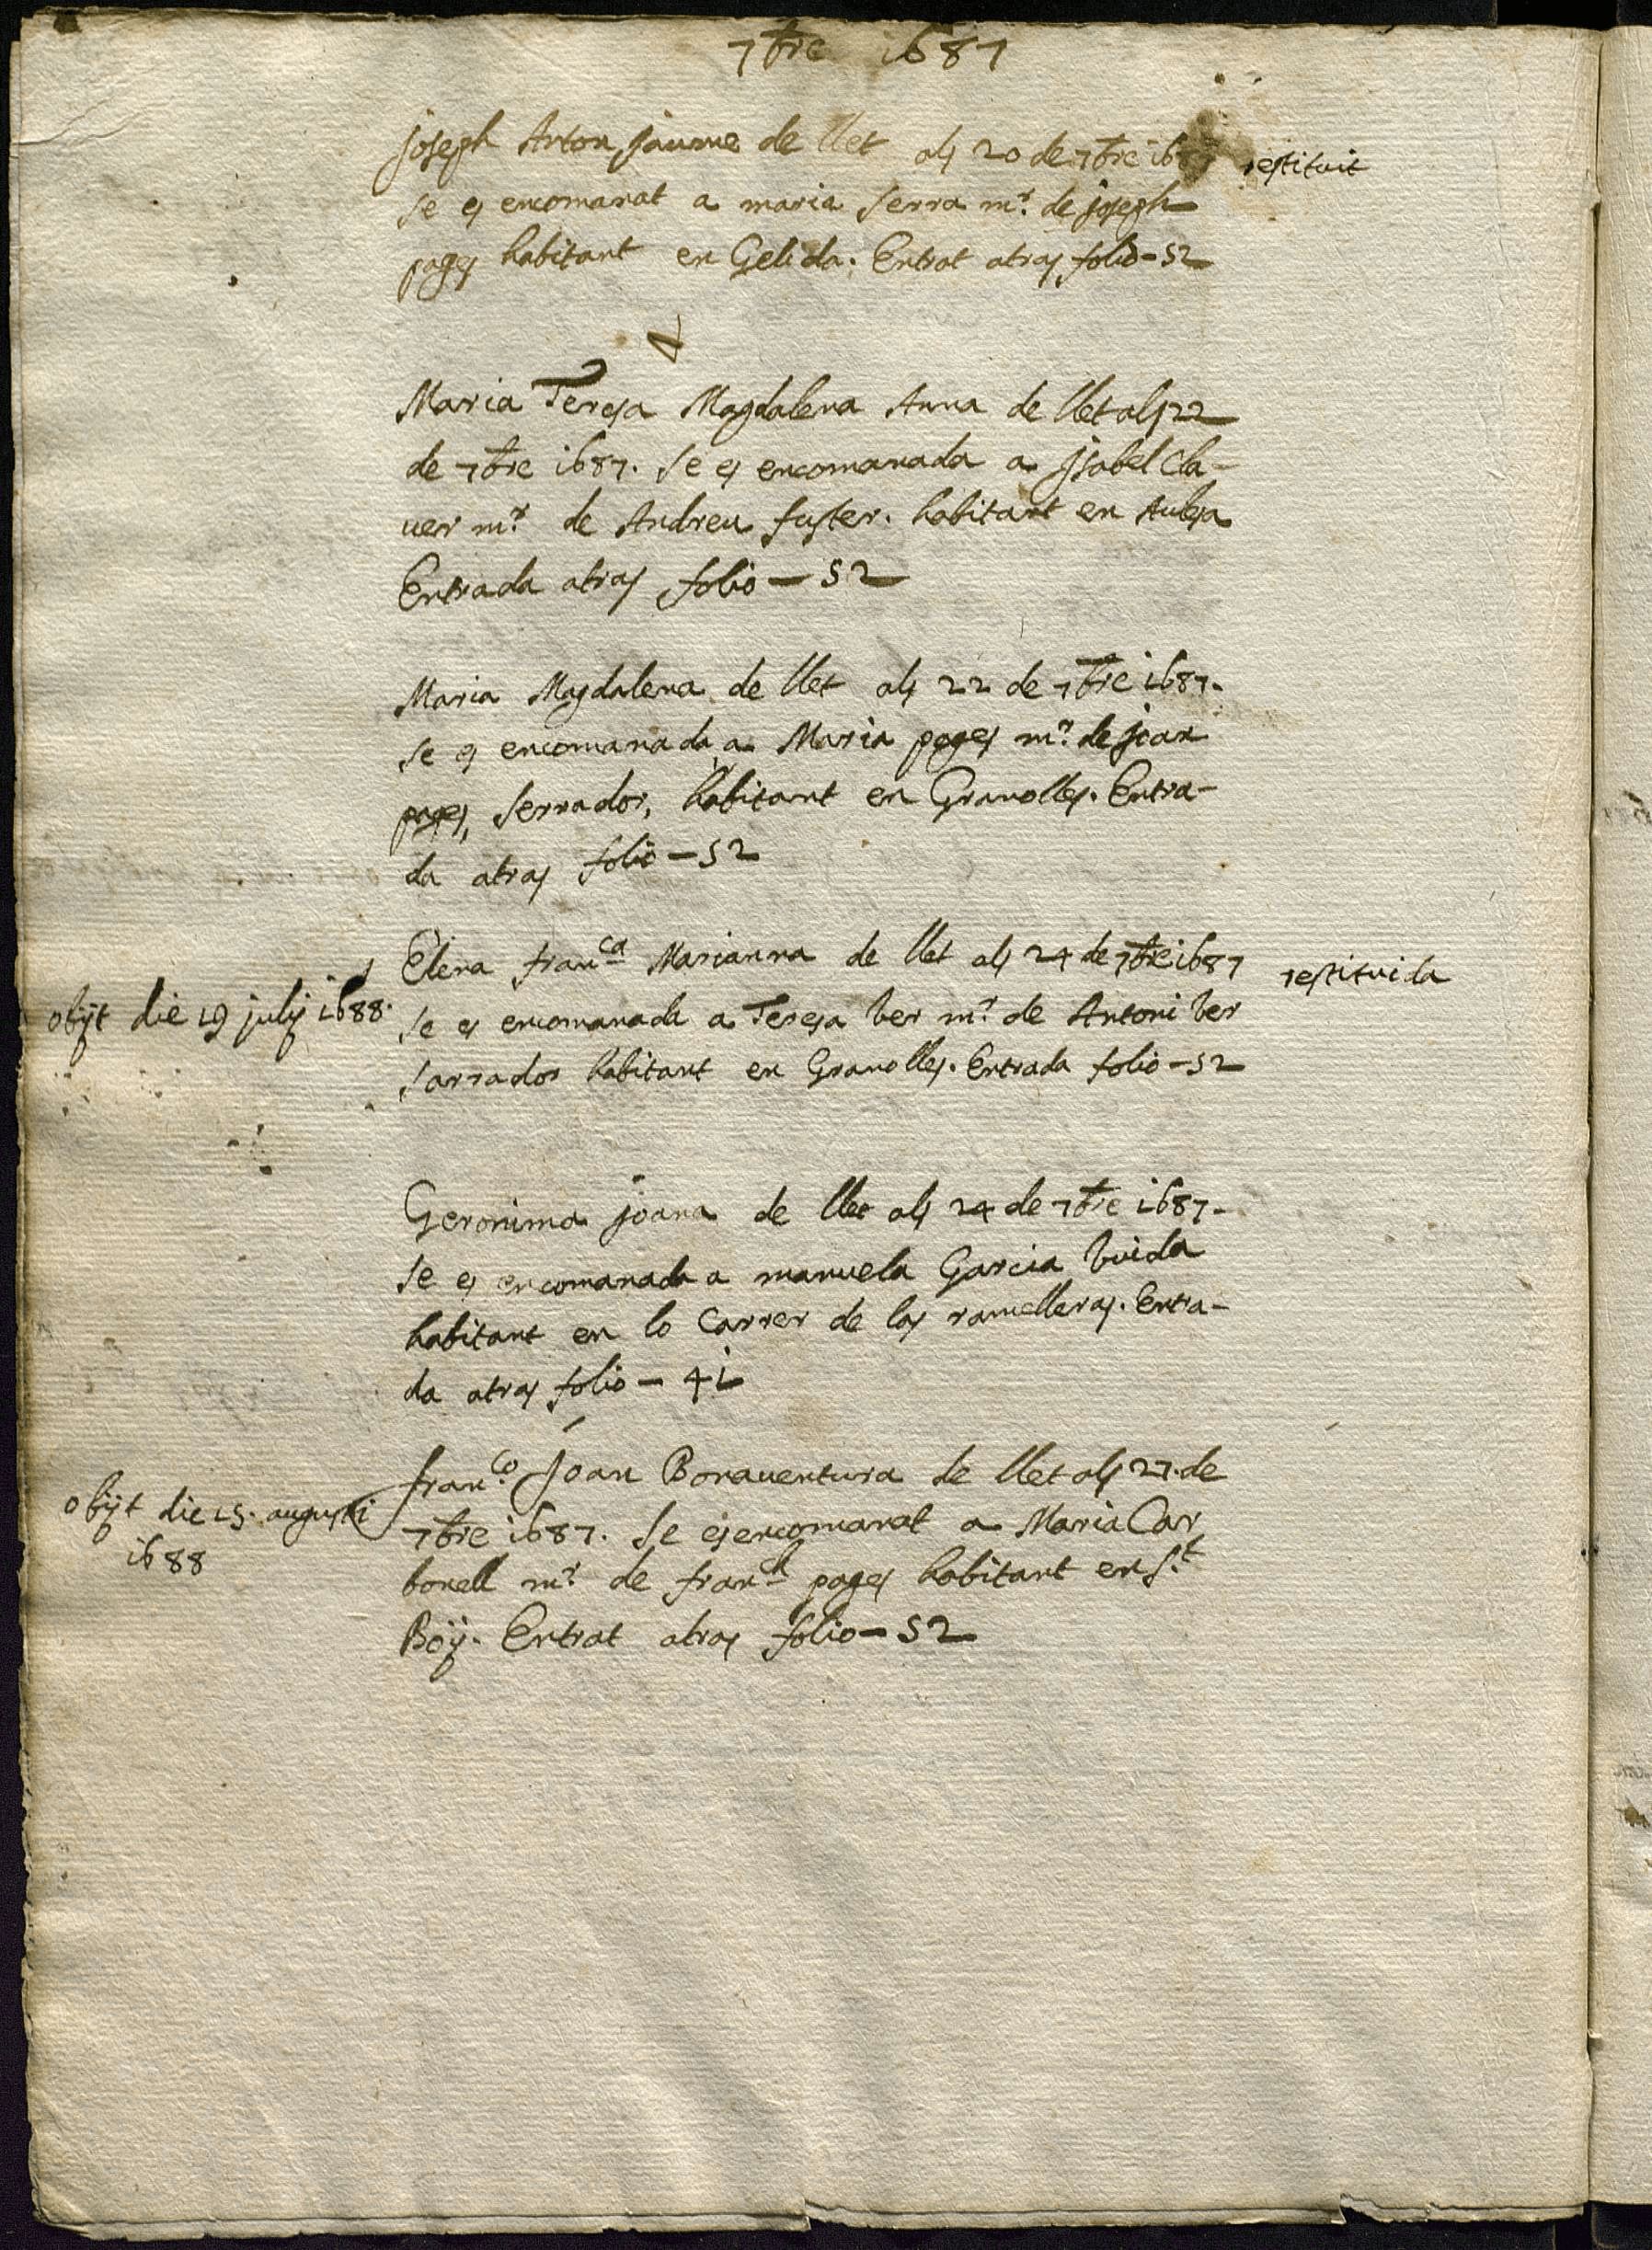 7bre 1687
Joseph Anton Jaume de llet als 20 de 7bre 1687 restituit
se es encomanat a maria serra mr. de joseph
pages habitant en Gelida. Entrat atras folio - 52
Maria Teresa Magdalena Anna de llet als 22
de 7bre 1687. se es encomanada a Jsabel Cla-
uer mr. de Andreu fuster. habitant en Aulesa
Entrada atras folio - 52
Maria Magdalena de llet als 22 de 7bre 1687.
se es encomanada a Maria pages mr. de joan
pages, serrador, habitant en Granolles. Entra-
da atras folio - 52
Elena franca Marianna de llet als 24 de 7bre 1687 restituida
obijt die 19 julij 1688.
se es encomanada a Teresa ber mr. de Antoni ber
sarrador habitant en Granolles. Entrada folio - 52
Geronima joana de llet als 24 de 7bre 1687.
se es encomanada a manuela Garcia buida
habitant en lo Carrer de las ramelleras. Entra-
da atras folio - 41
franco. Joan Bonauentura de llet als 27. de
obijt die 15. augusti
1688
7bre 1687. se es encomanat a Maria Car
bonell mr. de franch pages habitant en St.
Boÿ. Entrat atras folio - 52